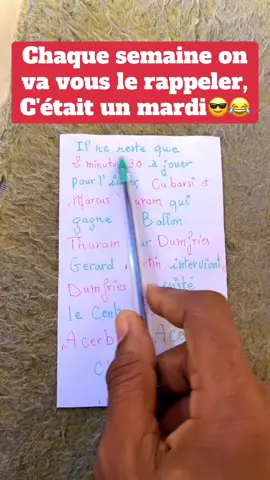 Chaque semaine on
va vous le rappeler,
C'était un mardi😎😂
Il ne reste que
2 minutes 30 à jouer
pour l'inter, Cubarsi et
Marcus Thuram qui
gagne Ballon
Thuram Dumfries
Gerard Martin intervient
Dumfries
le Cent
Acerb Ace